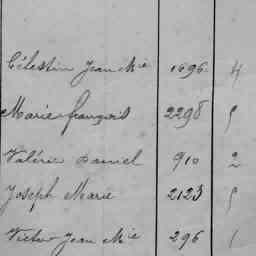 Célestin Jean Mie 1696 4
Marie françois 2298 5
Valérie Daniel 910 2
Joseph Marie 2123 5
Victor Jean Mie 296 1